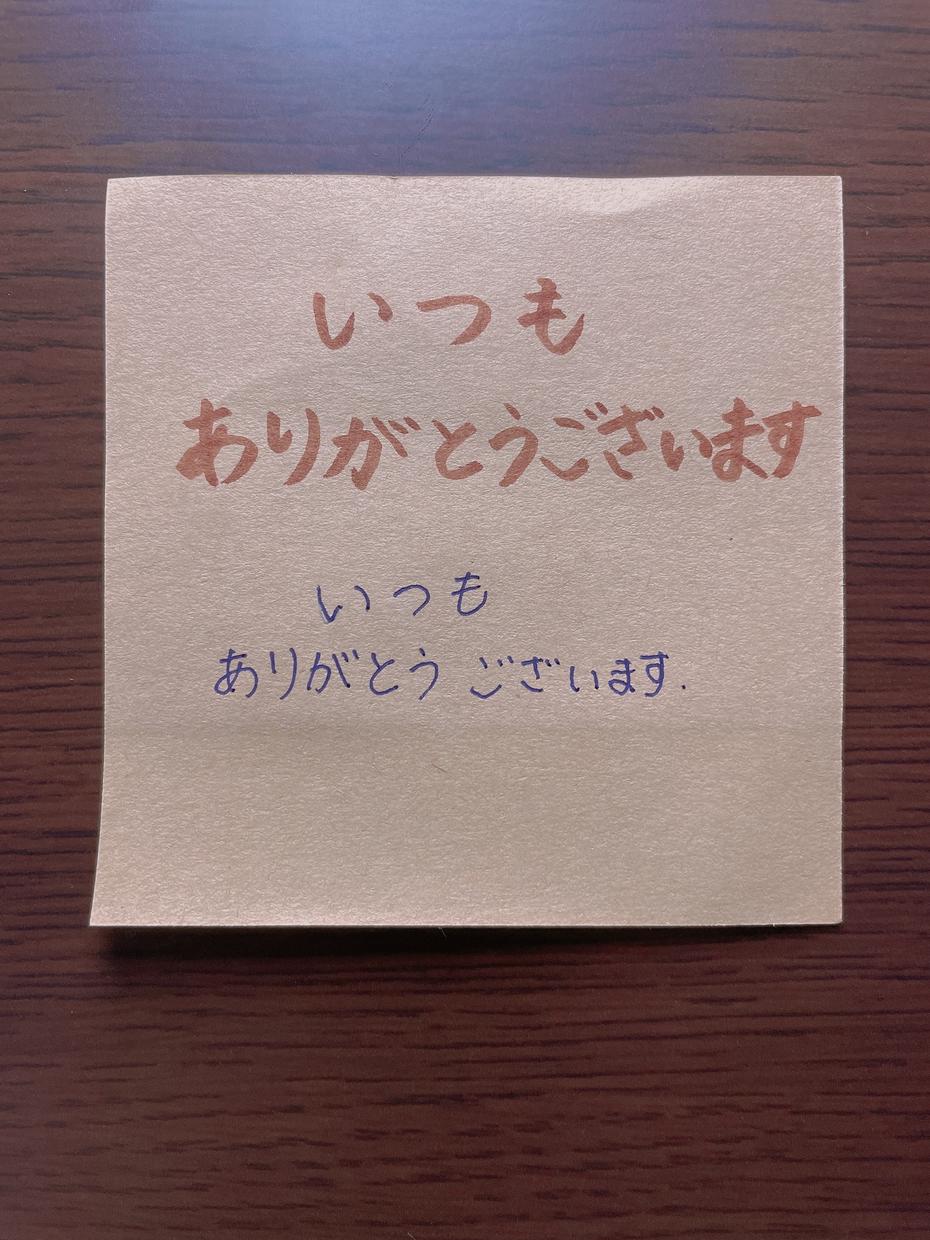 いつも
ありがとうございます
いつも
ありがとう ございます.